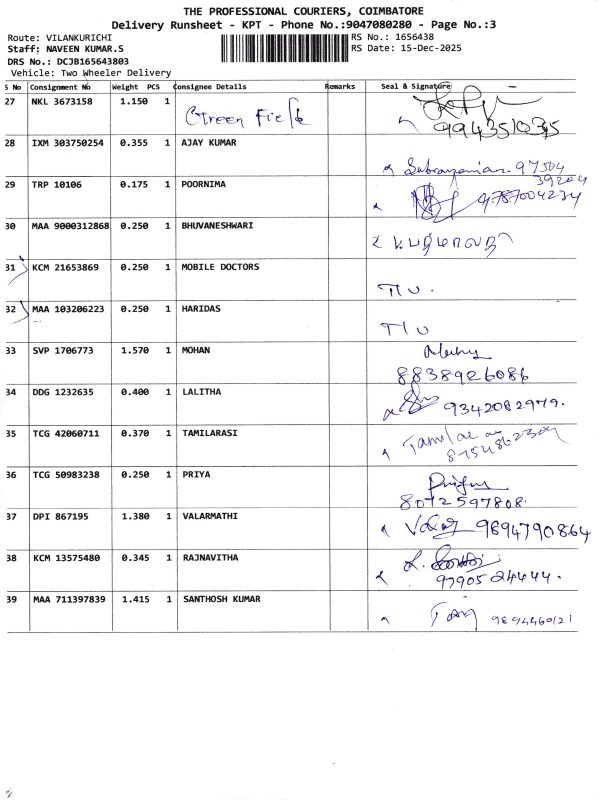 THE PROFESSIONAL COURIERS, COIMBATORE
Delivery Runsheet - KPT - Phone No.:9047080280 - Page No.:3
Route: VILANKURICHI
RS No.: 1656438
Staff: NAVEEN KUMAR.S
RS Date: 15-Dec-2025
DRS No.: DCJB165643803
Vehicle: Two Wheeler Delivery
S No Consignment No Weight PCS Consignee Details Remarks Seal & Signature
27 NKL 3673158 1.150 1 Green Field
9943510315
28 IXM 303750254 0.355 1 AJAY KUMAR
Subramanian 97504
39204
29 TRP 10106 0.175 1 POORNIMA
9787004234
30 MAA 9000312868 0.250 1 BHUVANESHWARI
31 KCM 21653869 0.250 1 MOBILE DOCTORS
TIU.
32 MAA 103206223 0.250 1 HARIDAS
TIU
33 SVP 1706773 1.570 1 MOHAN
8838926086
34 DDG 1232635 0.400 1 LALITHA
9342082979.
35 TCG 42060711 0.370 1 TAMILARASI
36 TCG 50983238 0.250 1 PRIYA
8072597808.
37 DPI 867195 1.380 1 VALARMATHI
9894790864
38 KCM 13575480 0.345 1 RAJNAVITHA
9790524444.
39 MAA 711397839 1.415 1 SANTHOSH KUMAR
9894460121